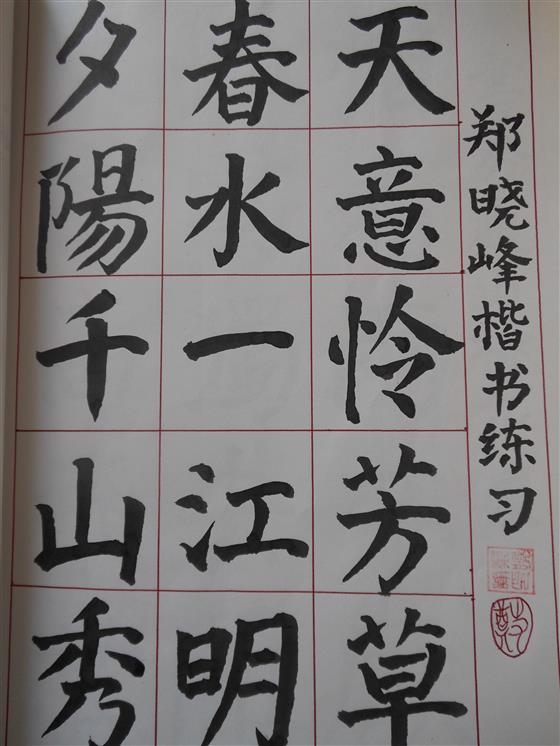 郑晓峰楷书练习
天意怜芳草
春水一江明
夕陽千山秀